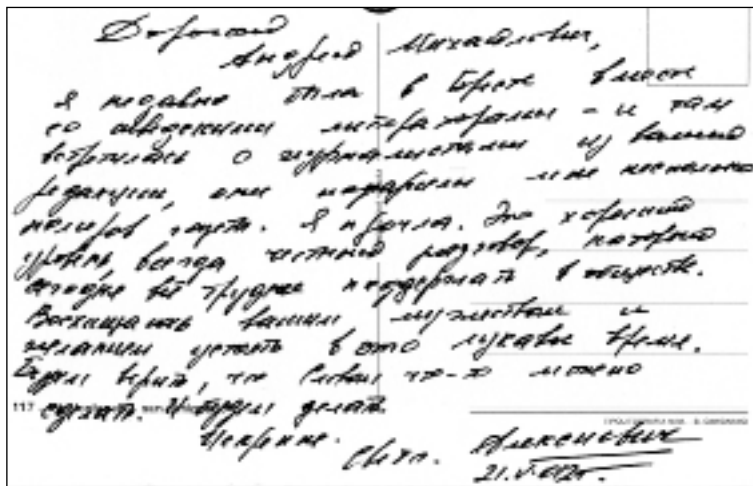 Дорогой
Андрей Михайлович,
Я недавно была в Бресте вместе
со шведскими литераторами – и там
встретилась с журналистами из вашей
редакции, они подарили мне несколько
номеров газет. Я прочла. Это хороший
уровень, всегда честный разговор, который
сегодня всё труднее поддержать в обществе.
Восхищаюсь вашим мужеством и
желанием устоять в это лукавое время.
Будем верить, что Словом что-то можно
117
сделать. И будем делать.
Искренне.
Свет. Алексиевич
21.V.012г.